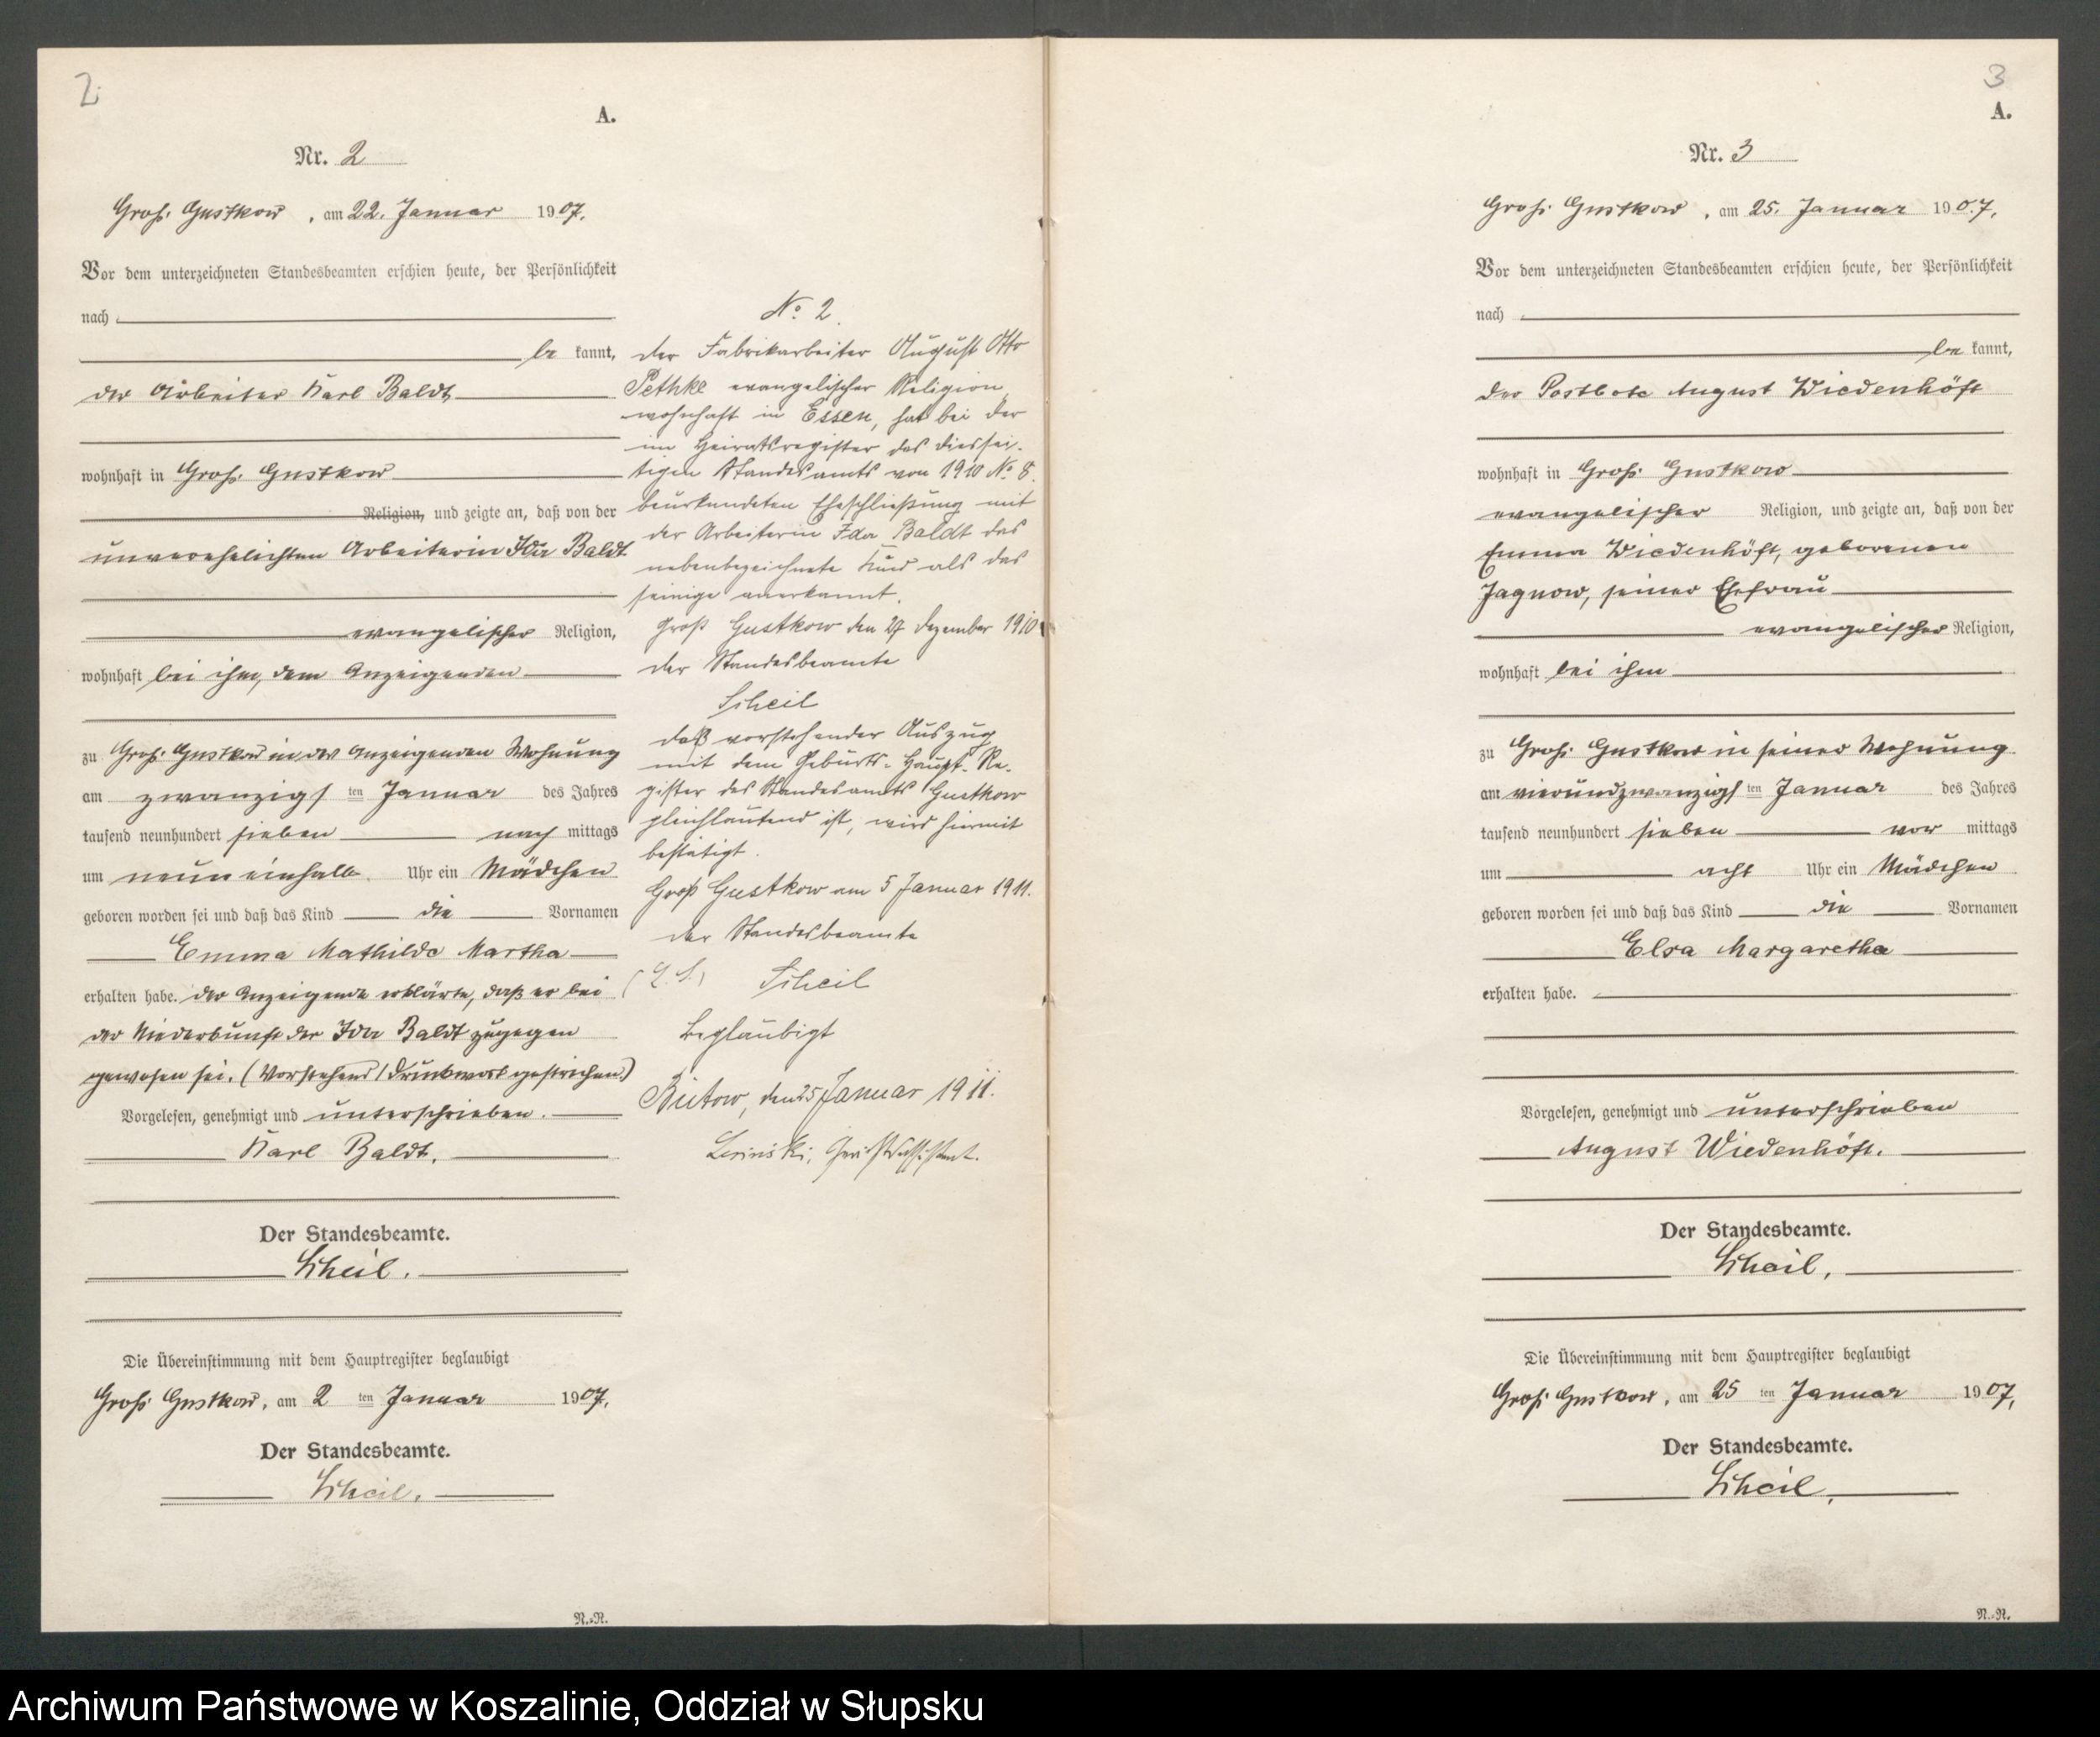 2.
A.
Nr. 2
Groß Gustkow, am 22. Januar 1907.
Vor dem unterzeichneten Standesbeamten erschien heute, der Persönlichkeit
nach
be kannt,
der Arbeiter Karl Baldt
wohnhaft in Groß Gustkow
Religion, und zeigte an, daß von der
unverehelichten Arbeiterin Ida Baldt
evangelischer Religion,
wohnhaft bei ihm, dem Anzeigenden
zu Groß Gustkow in des Anzeigenden Wohnung
am zwanzigsten Januar des Jahres
tausend neunhundert sieben nach mittags
um neun einhalb Uhr ein Mädchen
geboren worden sei und daß das Kind die Vornamen
Emma Mathilde Martha
erhalten habe. Der Anzeigende erklärte, daß er bei
der Niederkunft der Ida Baldt zugegen
gewesen sei. (Vorstehend 1 Druckwort gestrichen.)
Vorgelesen, genehmigt und unterschrieben.
Karl Baldt.
Der Standesbeamte.
Scheil.
Die Übereinstimmung mit dem Hauptregister beglaubigt
Groß Gustkow, am 2 ten Januar 1907.
Der Standesbeamte.
Scheil.
N.-R.
No 2.
der Fabrikarbeiter August Otto
Pethke evangelischer Religion
wohnhaft in Essen, hat bei der
im Heiratsregister des diessei-
tigen Standesamts von 1910 No 8.
beurkundeten Eheschließung mit
der Arbeiterin Ida Baldt das
nebenbezeichnete Kind als das
seinige anerkannt.
Groß Gustkow den 27 Dezember 1910
der Standesbeamte
Scheil
daß vorstehender Auszug
mit dem Geburts-Haupt-Re-
gister des Standesamts Gustkow
gleichlautend ist, wird hiermit
bestätigt.
Groß Gustkow am 5 Januar 1911.
der Standesbeamte
(L. S.) Scheil
Beglaubigt
Bütow, den 25 Januar 1911.
3
A.
Nr. 3
Groß Gustkow, am 25. Januar 1907.
Vor dem unterzeichneten Standesbeamten erschien heute, der Persönlichkeit
nach
be kannt,
der Postbote August Wiedenhöft
wohnhaft in Groß Gustkow
evangelischer Religion, und zeigte an, daß von der
Emma Wiedenhöft, geborenen
Jagnow, seiner Ehefrau
evangelischer Religion,
wohnhaft bei ihm
zu Groß Gustkow in seiner Wohnung
am vierundzwanzigsten Januar des Jahres
tausend neunhundert sieben vor mittags
um acht Uhr ein Mädchen
geboren worden sei und daß das Kind die Vornamen
Elsa Margaretha
erhalten habe.
Vorgelesen, genehmigt und unterschrieben
August Wiedenhöft.
Der Standesbeamte.
Scheil.
Die Übereinstimmung mit dem Hauptregister beglaubigt
Groß Gustkow, am 25 ten Januar 1907.
Der Standesbeamte.
Scheil.
N.-R.
Archiwum Państwowe w Koszalinie, Oddział w Słupsku